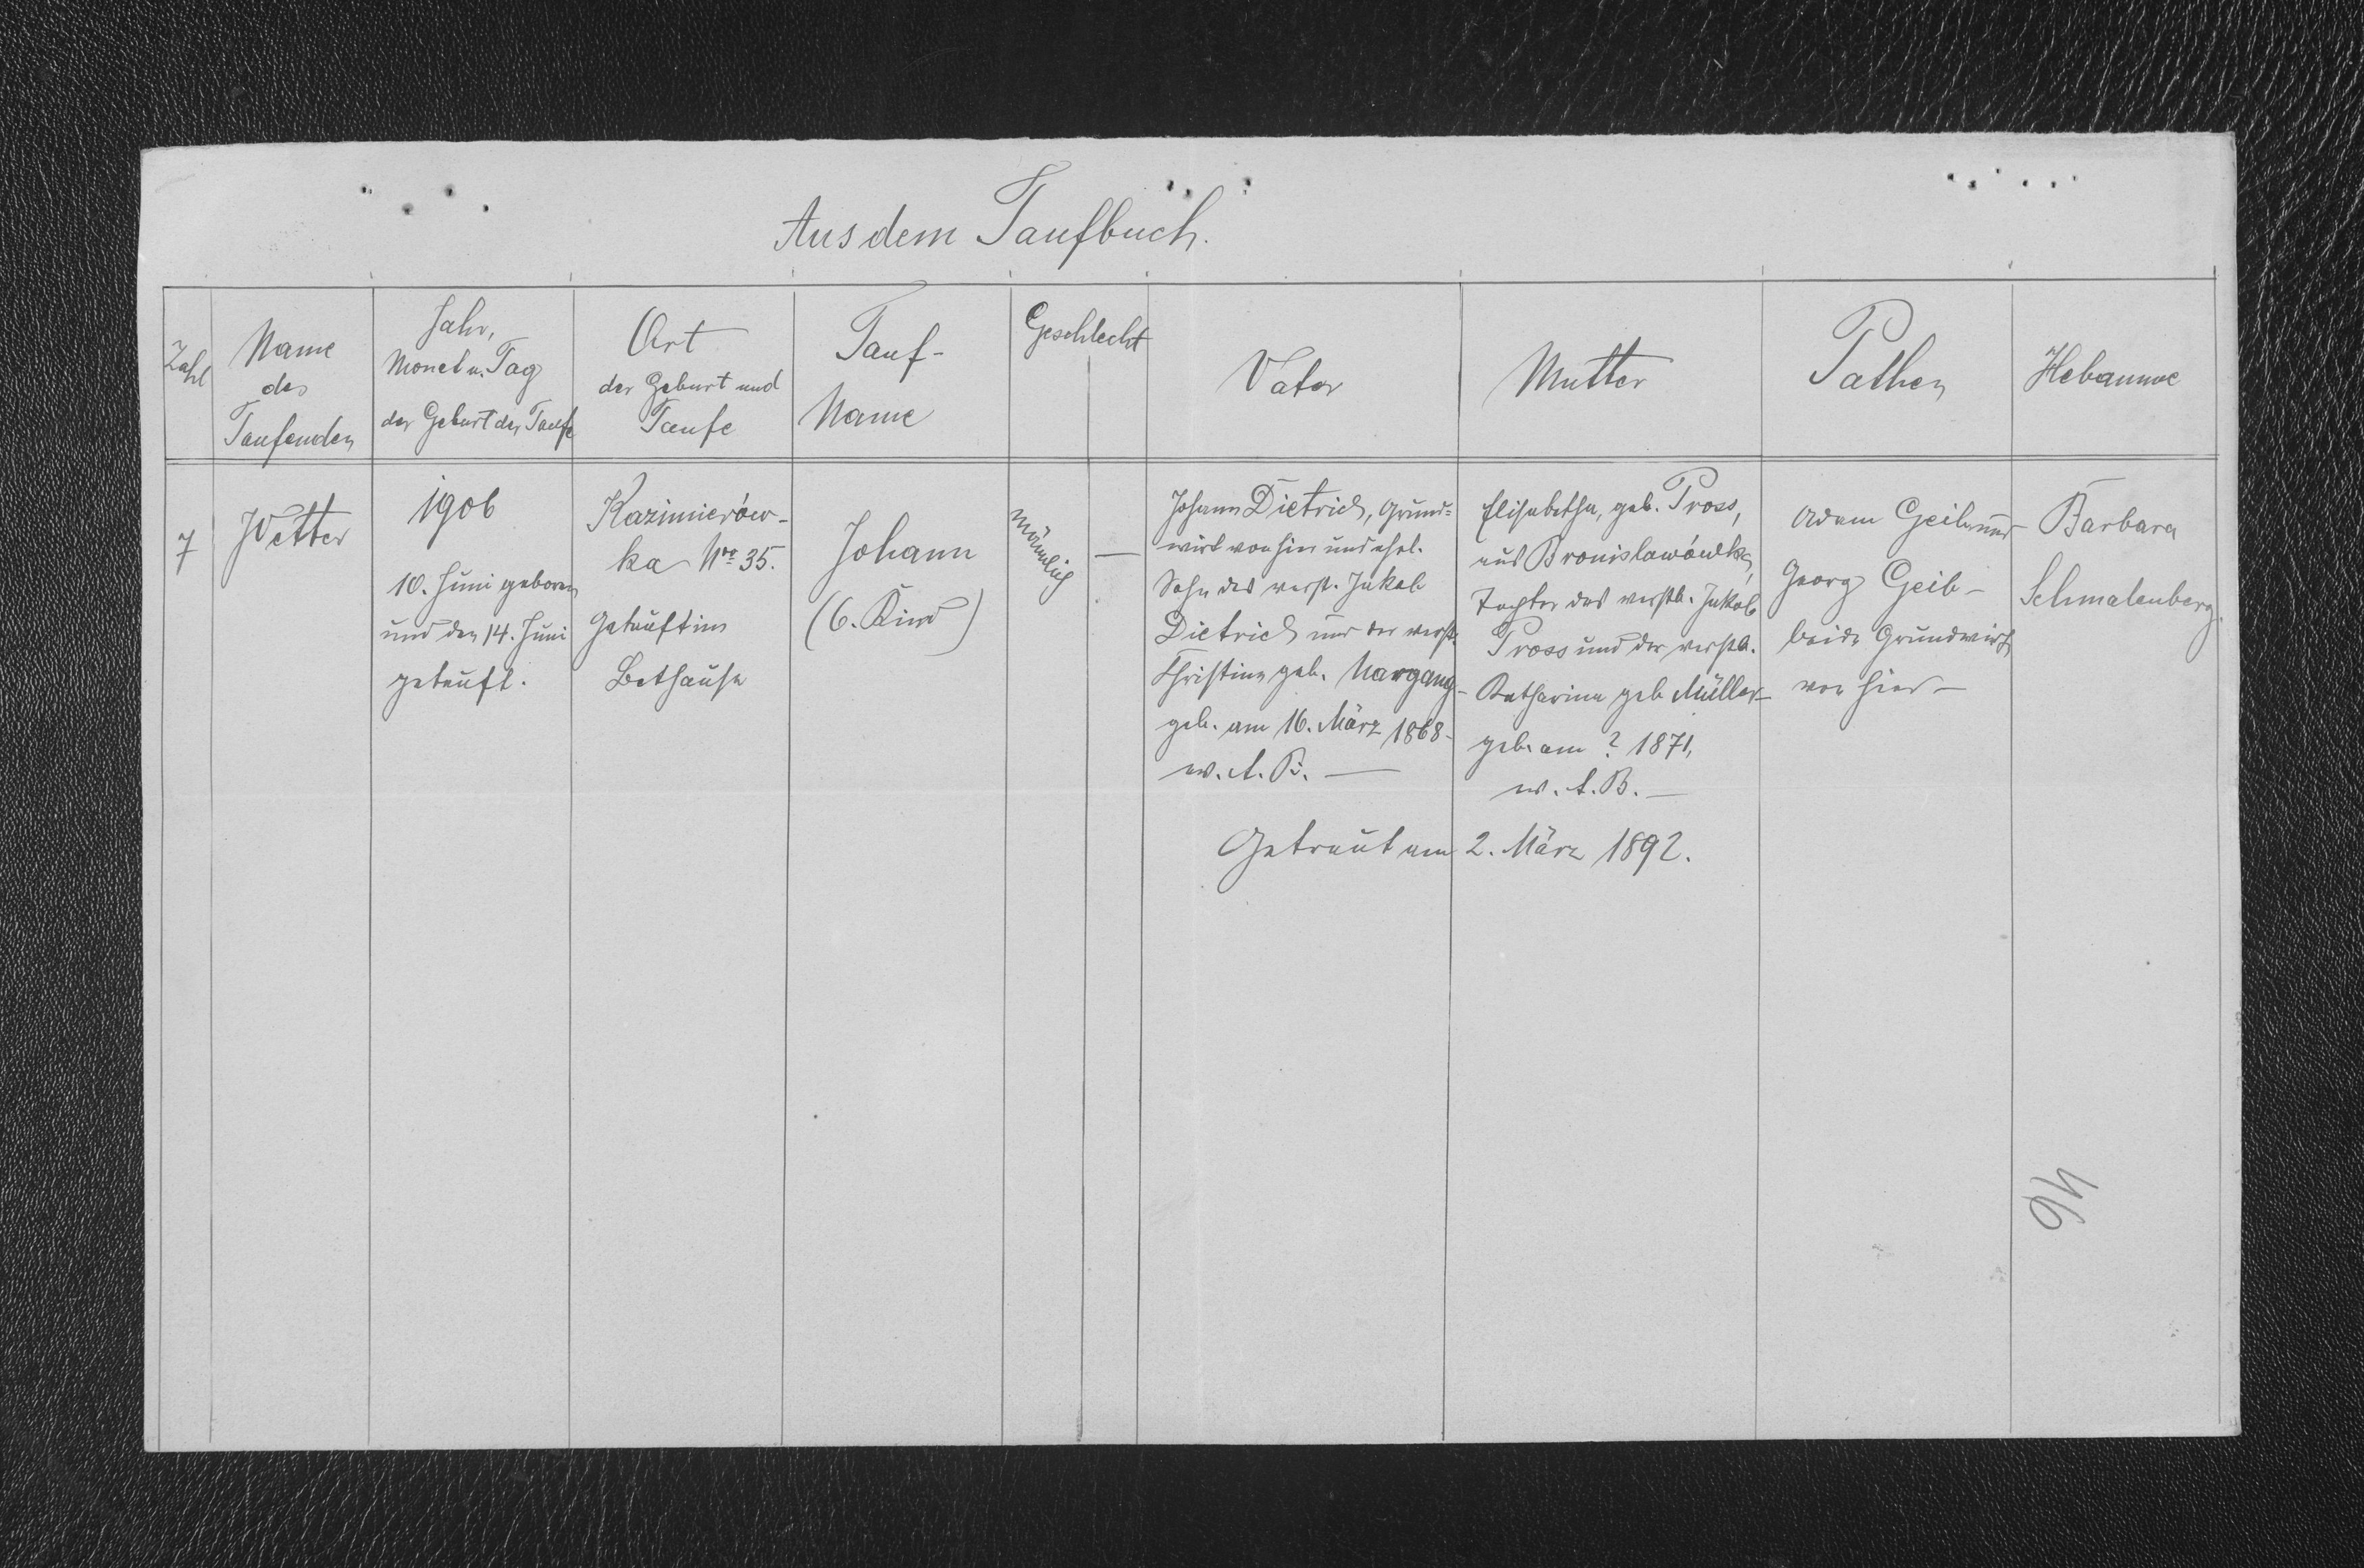 Aus dem Taufbuch.
Zahl
Name
des
Taufenden
Jahr,
Monat u. Tag
der Geburt der Taufe
Ort
der Geburt und
Taufe
Tauf-
Name
Geschlecht
Vater
Mutter
Pathen
Hebamme
7
Vetter
1906
10. Juni geboren
und den 14. Juni
getauft.
Kazimierów-
ka Nro 35.
Getauft im
Bethause
Johann
(6. Kind)
männlich
—
Johann Dietrich, Grund=
wirt von hier und ehel.
Sohn des verst. Jakob
Dietrich und der verst.
Christine geb. Nargang-
geb. am 16. März 1868-
ev. A. B. —
Elisabetha, geb. Pross,
aus Bronislawówka,
Tochter des verstb. Jakob
Pross und der verstb.
Katharina geb Müller-
geb. am ? 1871,
ev. A. B. —
Getraut am 2. März 1892.
Adam Geib und
Georg Geib-
beide Grundwirth
von hier-
Barbara
Schmalenberg.